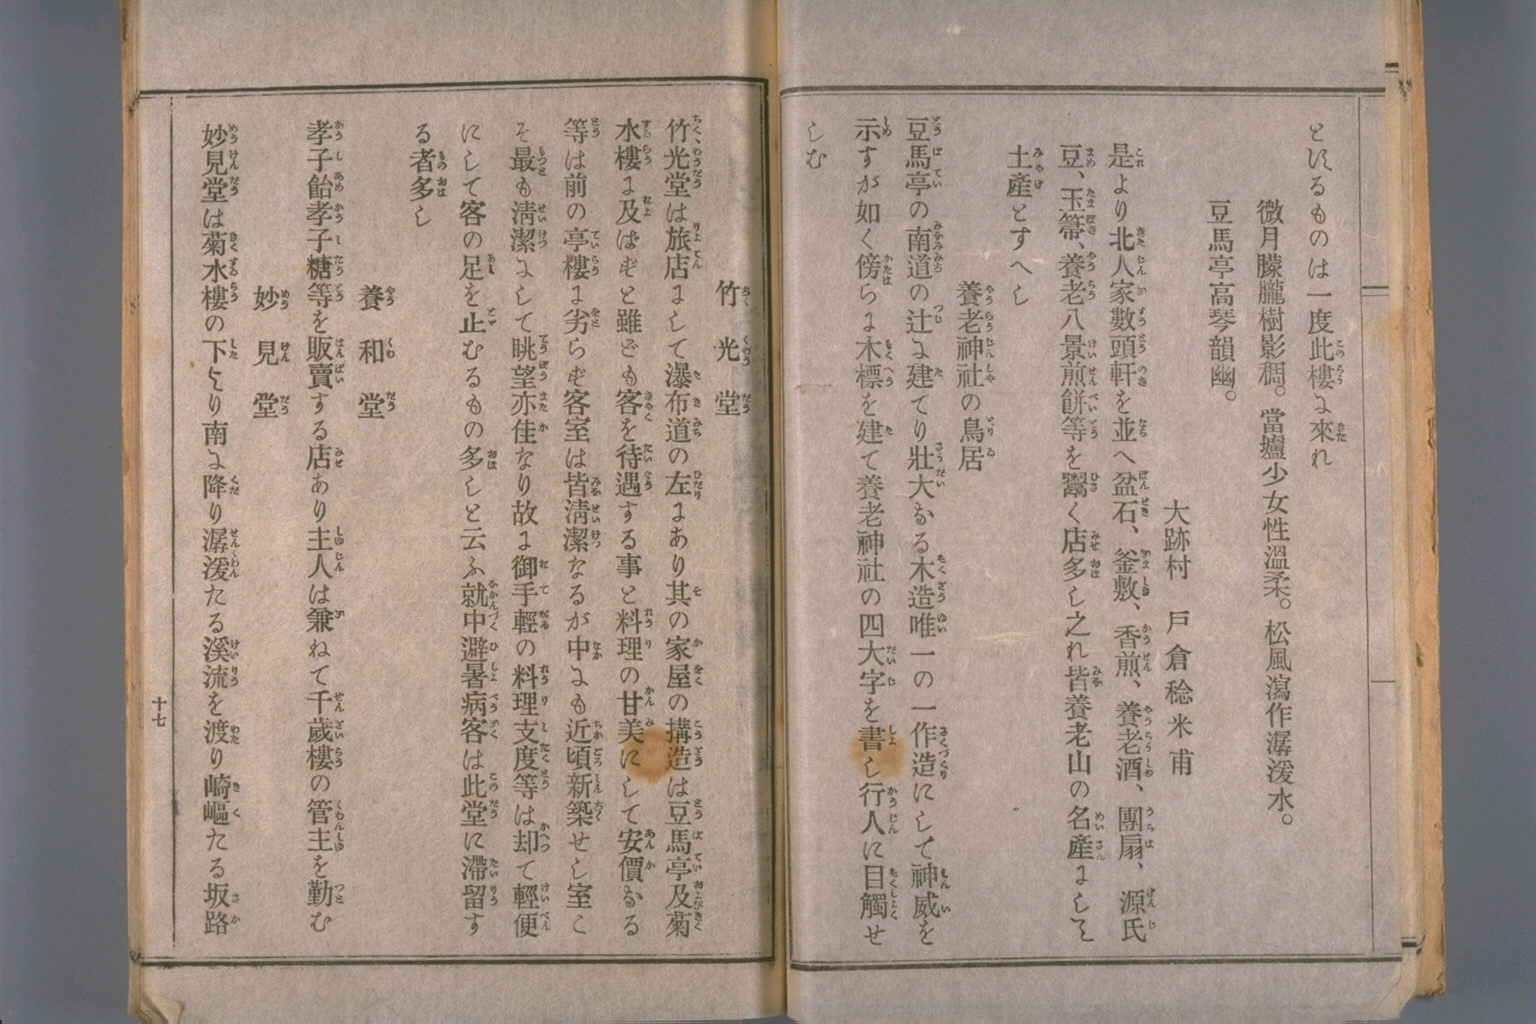 とはるものは一度此樓に來れ
微月朦朧樹影稠。當壚少女性溫柔。松風瀉作潺湲水。
豆馬亭高琴韻幽。
大跡村　戶倉稔米甫
是より北人家數頭軒を並へ盆石、釜敷、香煎、養老酒、團扇、源氏
豆、玉箒、養老八景煎餅等を鬻く店多し之れ皆養老山の名產にして
土產とすへし
養老神社の鳥居
豆馬亭の南道の辻に建てり壯大なる木造唯一の一作造にして神威を
示すが如く傍らに木標を建て養老神社の四大字を書し行人に目觸せ
しむ
竹光堂
竹光堂は旅店にして瀑布道の左にあり其の家屋の搆造は豆馬亭及菊
水樓に及ばずと雖ども客を待遇する事と料理の甘美にして安價なる
等は前の亭樓に劣らず客室は皆淸潔なるが中にも近頃新築せし室こ
そ最も淸潔にして眺望亦佳なり故に御手輕の料理支度等は却て輕便
にして客の足を止むるもの多しと云ふ就中避暑病客は此堂に滯留す
る者多し
養和堂
孝子飴孝子糖等を販賣する店あり主人は兼ねて千歲樓の管主を勤む
妙見堂
妙見堂は菊水樓の下より南に降り潺湲たる溪流を渡り崎嶇たる坂路
十七